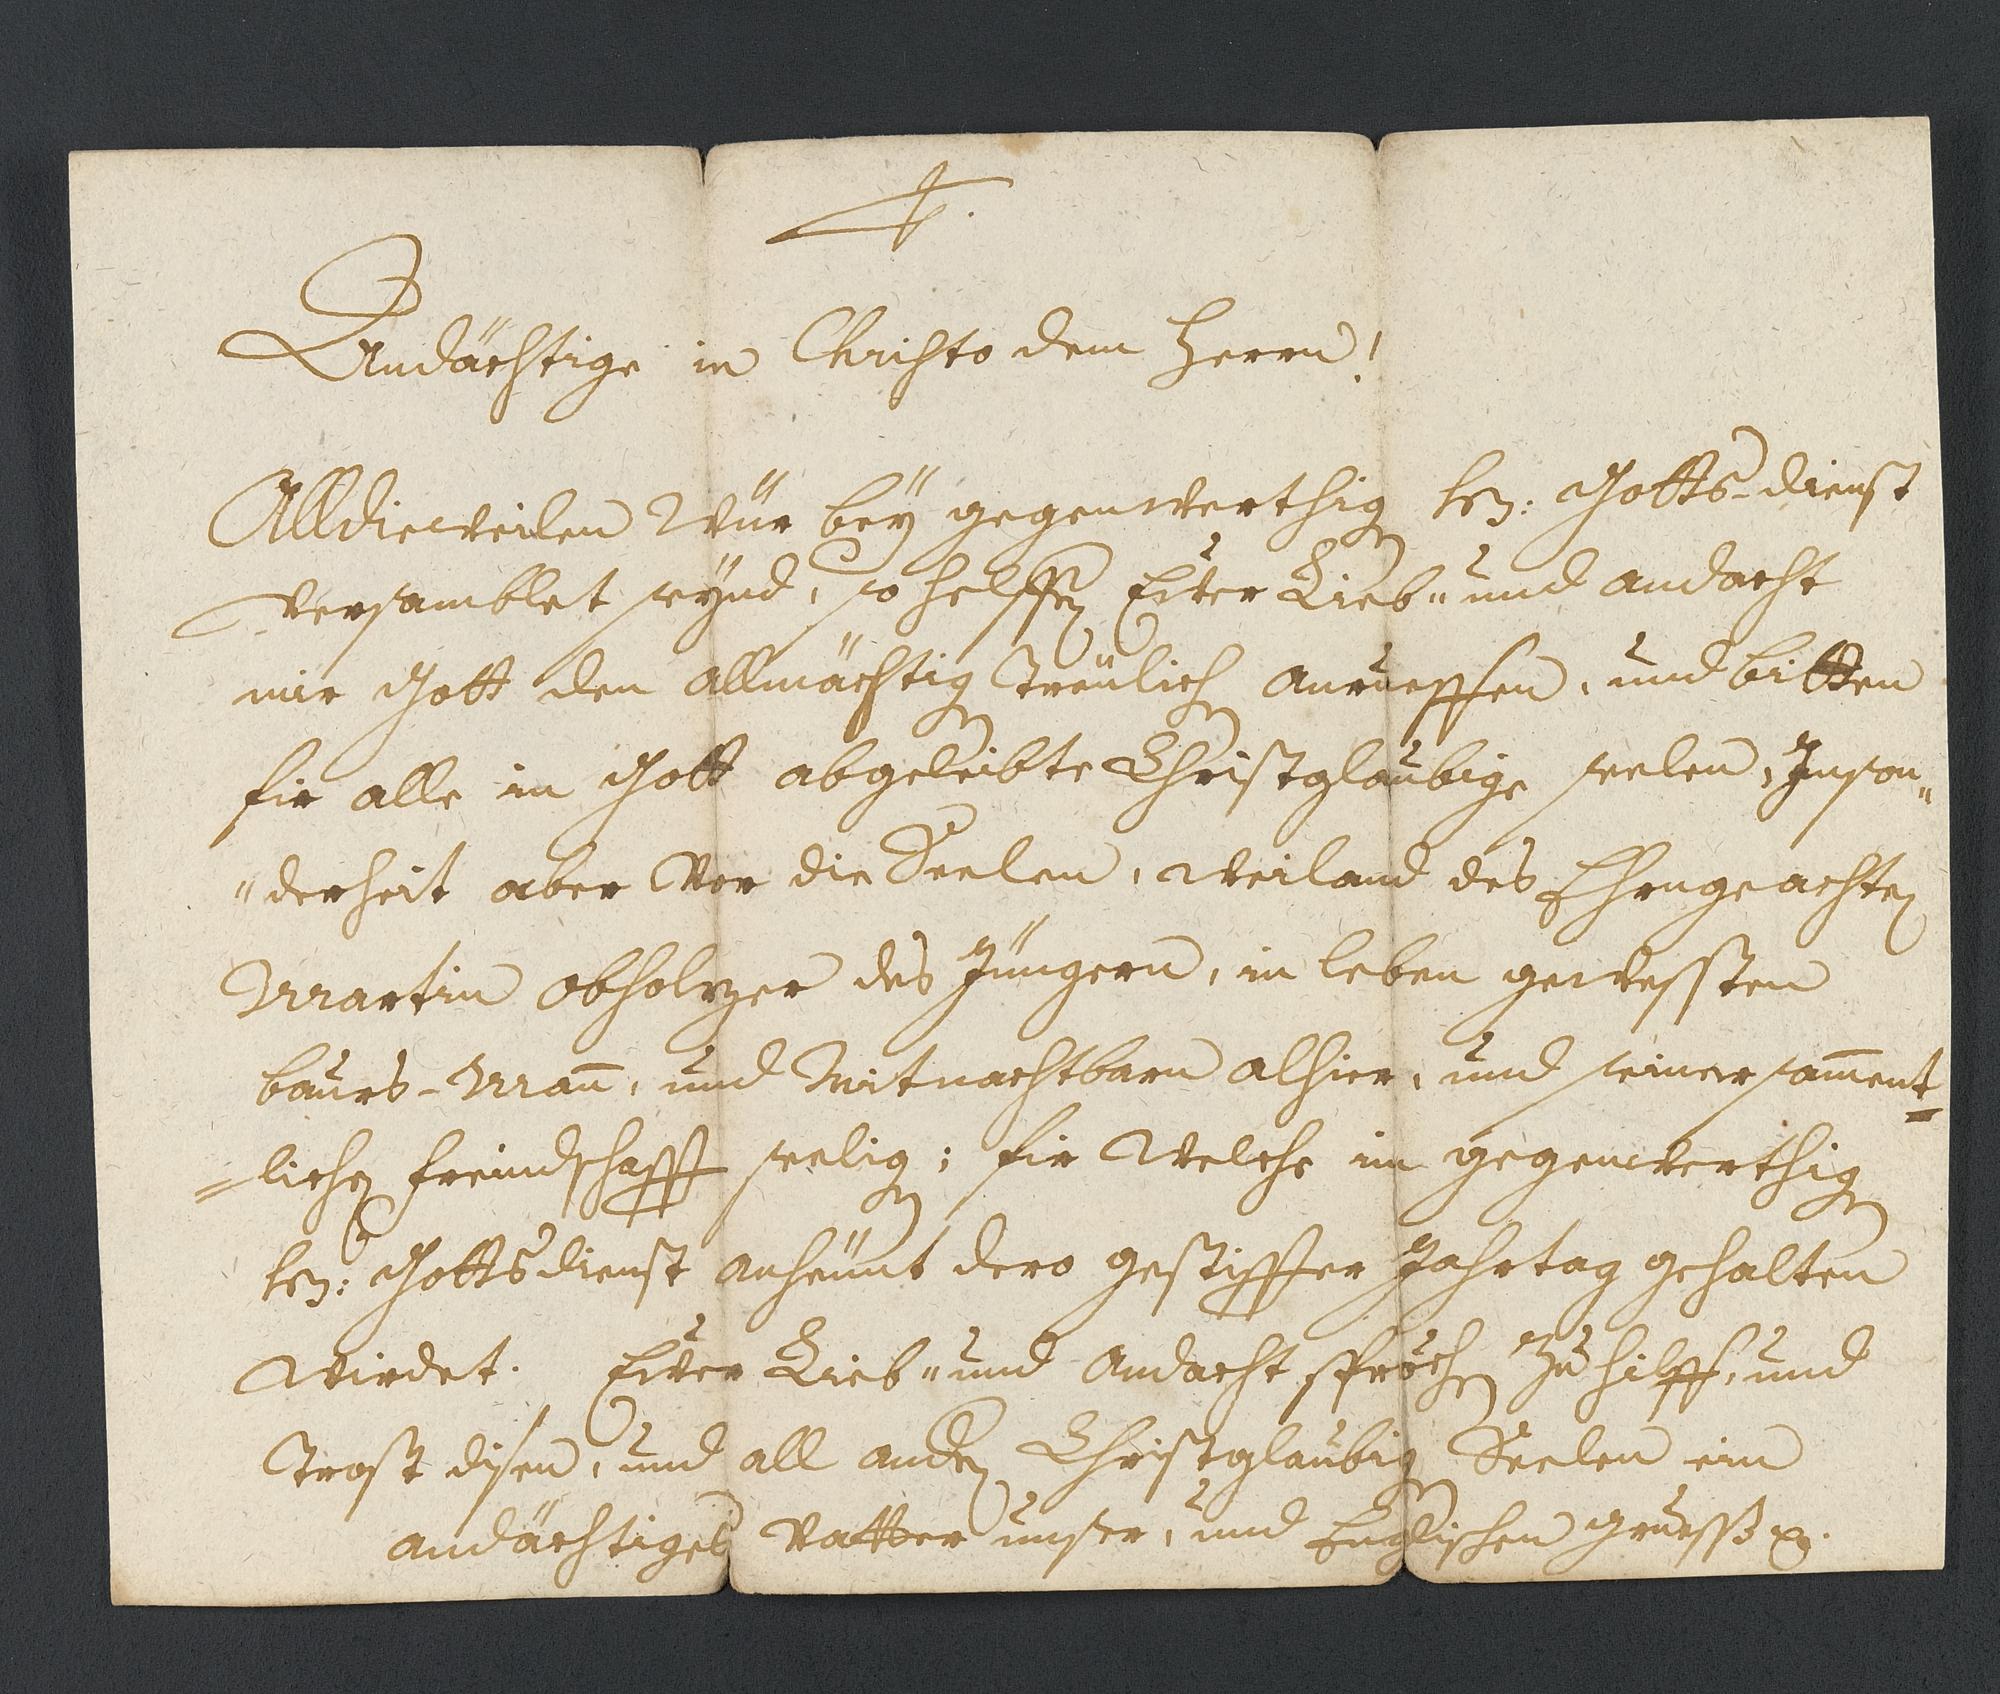 Andächtige in Christo dem Herrn!
Alldieweilen Wür bey gegenwerthig hey: Gotts-dienst
versamblet seynd, so helffen Euer Lieb- und andacht
mir Gott den allmächtig treülich anrueffen, und bitten
fir alle in Gott abgeleibte Christglaubige seelen, Inson"
"derheit aber Vor die Seelen, weiland des Ehrngeachten
Martin obholzer des Jüngern, in leben gewessten
baurs-Mañ, und Mitnachtbarn alhier, und seiner sam̄ent=
=lichen freindschafft seelig; fir Welche im gegenwerthig
hey: Gottsdienst anheünt dero gestiffter Jahrtag gehalten
wirdet. Euer Lieb- und Andacht sprechen Zu hilff, und
trost disen, und all andern Christglaubig Seelen ein
andächtiges Vatter unser, und Englischen gruess